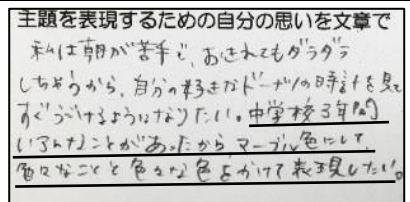 主題を表現するための自分の思いを文章で
私は朝が苦手で、おきれてもダラダラ
しちゃうから、自分の好きなドーナツの時計を見て
すぐうごけるようになりたい。中学校3年間
いろんなことがあったから、マーブル色にして、
色々なことと色々な色をかけて表現したい。